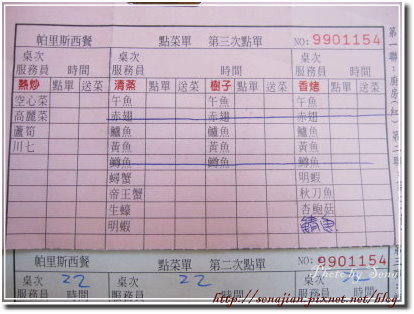 帕里斯西餐 點菜單 第三次點單 NO: 9901154
桌次 桌次 桌次
服務員 時間 服務員 時間 服務員 時間
熱炒 點單 送菜 清蒸 點單 送菜 樹子 點單 送菜 香烤 點單 送菜
空心菜 午魚 午魚 午魚
高麗菜 赤翅 赤翅 赤翅
蘆筍 鱸魚 鱸魚 鱸魚
川七 黃魚 黃魚 黃魚
鱒魚 鱒魚 鱒魚
蟳蟹 明蝦
帝王蟹 秋刀魚
生蠔 杏鮑菇
明蝦 鯖魚
帕里斯西餐 點菜單 第二次點單 NO: 9901154
桌次 22 桌次 22 桌次
服務員 時間 服務員 時間 服務員 時間
Photo by Sena
http://senajian.pixnet.net/blog